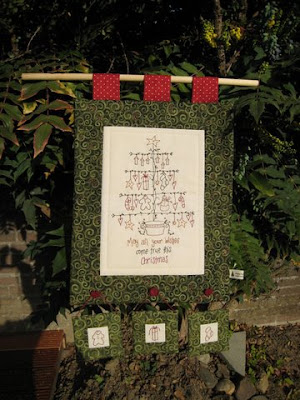 May all your wishes
come true this
Christmas